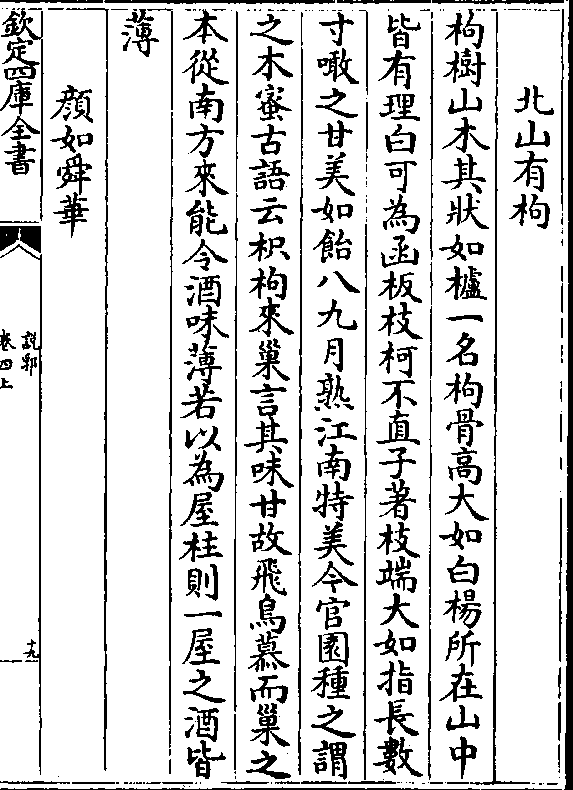 北山有枸
枸樹山木其狀如櫨一名枸骨高大如白楊所在山中
皆有理白可為函板枝柯不直子著枝端大如指長數
寸噉之甘美如飴八九月熟江南特美今官園種之謂
之木蜜古語云枳枸來巢言其味甘故飛鳥慕而巢之
本從南方來能令酒味薄若以為屋柱則一屋之酒皆
薄
顔如舜華
欽定四庫全書
說郛
卷四上
十九